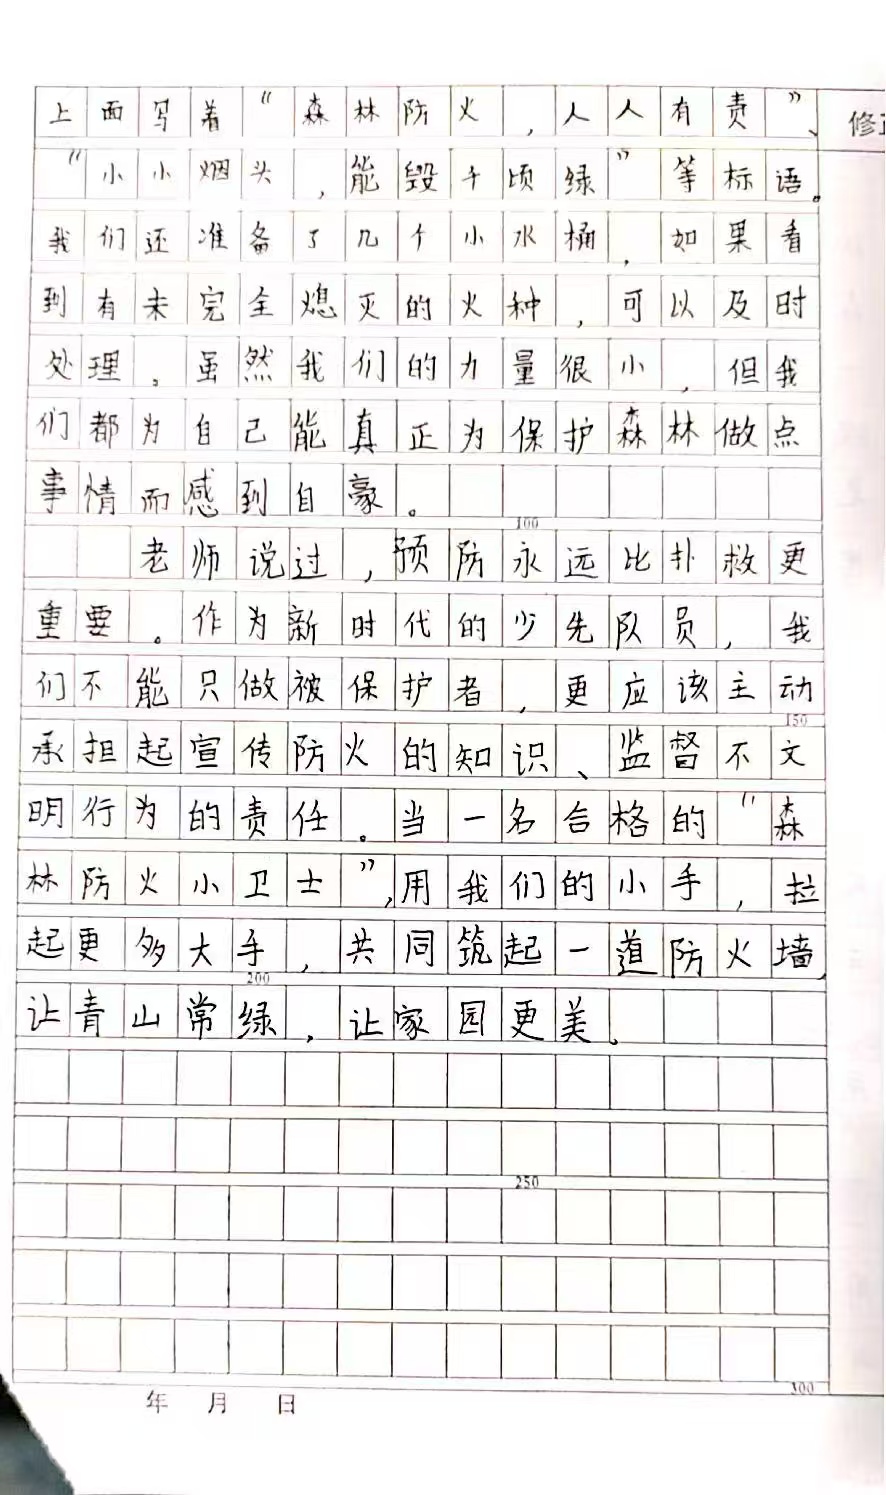 上面写着“森林防火，人人有责”、
修
“小小烟头，能毁千顷绿”等标语。
我们还准备了几个小水桶，如果看
到有未完全熄灭的火种，可以及时
处理。虽然我们的力量很小，但我
们都为自己能真正为保护森林做点
事情而感到自豪。
100
老师说过，预防永远比扑救更
重要。作为新时代的少先队员，我
们不能只做被保护者，更应该主动
150
承担起宣传防火的知识、监督不文
明行为的责任。当一名合格的“森
林防火小卫士”，用我们的小手，拉
起更多大手，共同筑起一道防火墙，
200
让青山常绿，让家园更美。
250
300
年 月 日